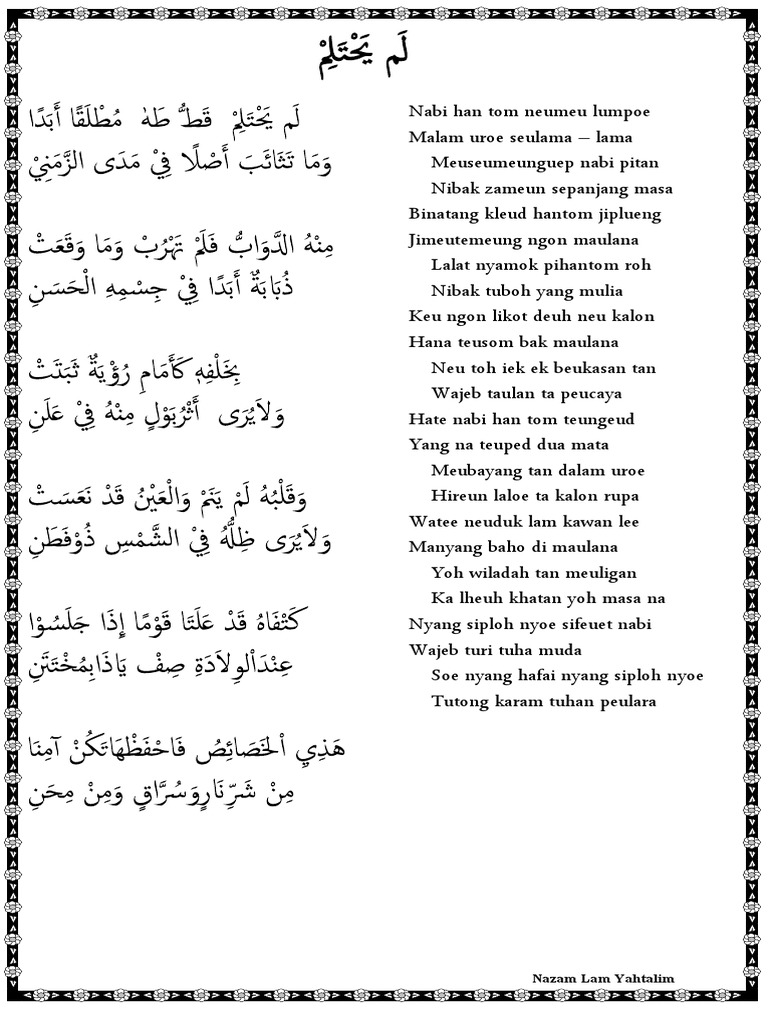 لَم يَحْتَلِمْ
لَم يَحْتَلِمْ قَطُّ طَهٰ مُطْلَقًا أَبَدًا
وَمَا تَثَائَبَ أَصْلًا فِيْ مَدَى الزَّمَنِيْ
مِنْهُ الدَّوَابُّ فَلَمْ تَهْرُبْ وَمَا وَقَعَتْ
ذُبَابَةٌ أَبَدًا فِيْ جِسْمِهِ الْحَسَنِ
بِخَلْفِهِ كَأَمَامِ رُؤْيَةٌ ثَبَتَتْ
وَلاَيُرَى أَثْرُبَوْلٍ مِنْهُ فِيْ عَلَنِ
وَقَلْبُهُ لَمْ يَنَمْ وَالْعَيْنُ قَدْ نَعَسَتْ
وَلاَيُرَى ظِلُّهُ فِيْ الشَّمْسِ ذُوْفَطَنِ
كَتْفَاهُ قَدْ عَلَتَا قَوْمًا إِذَا جَلَسُوْا
عِنْدَاْلوِلاَدَةِ صِفْ يَاذَابِمُخْتَتَنِ
هَذِيِ اْلخَصَائِصُ فَاحْفَظْهَاتَكُنْ آمِنَا
مِنْ شَرِّنَارٍوَسُرَّاقٍ وَمِنْ مِحَنِ
Nabi han tom neumeu lumpoe
Malam uroe seulama – lama
Meuseumeunguep nabi pitan
Nibak zameun sepanjang masa
Binatang kleud hantom jiplueng
Jimeutemeung ngon maulana
Lalat nyamok pihantom roh
Nibak tuboh yang mulia
Keu ngon likot deuh neu kalon
Hana teusom bak maulana
Neu toh iek ek beukasan tan
Wajeb taulan ta peucaya
Hate nabi han tom teungeud
Yang na teuped dua mata
Meubayang tan dalam uroe
Hireun laloe ta kalon rupa
Watee neuduk lam kawan lee
Manyang baho di maulana
Yoh wiladah tan meuligan
Ka lheuh khatan yoh masa na
Nyang siploh nyoe sifeuet nabi
Wajeb turi tuha muda
Soe nyang hafai nyang siploh nyoe
Tutong karam tuhan peulara
Nazam Lam Yahtalim